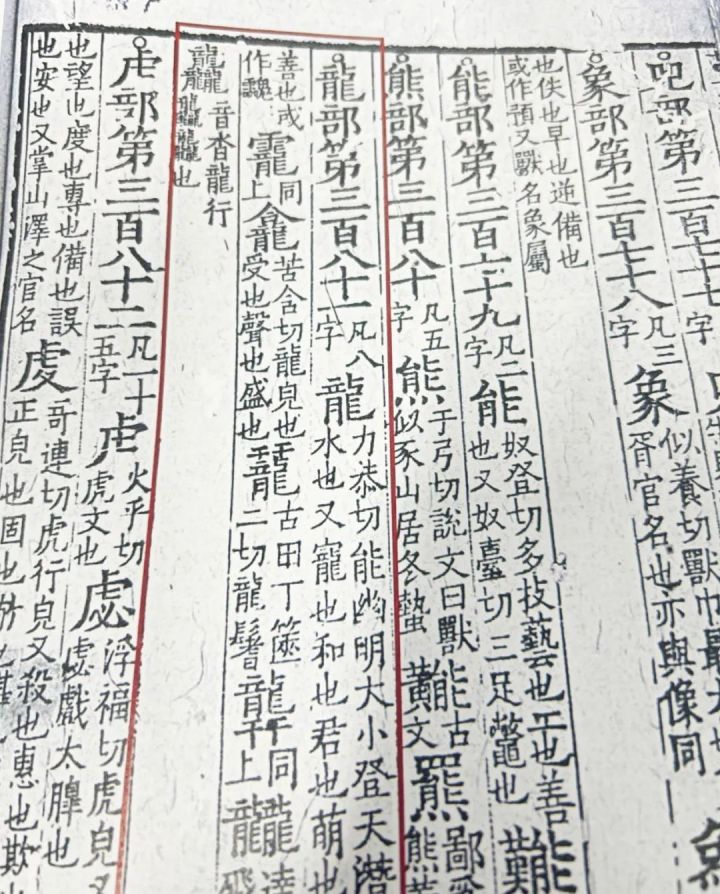 部第三百七十七字
象部第三百七十八凡三字象似養切獸胥官名也亦與像同
也佚也早也逆備也或作預又獸名象屬
能部第三百七十九凡二字能奴登切多技藝也工也善也又奴臺切三足鼈也
熊部第三百八十凡五字熊于弓切說文曰獸似豕山居冬蟄古文羆鄙熊
龍部第三百八十一凡八字龍力恭切能幽明大小登天潛水也又寵也和也君也萌也
善也或作龗同上龕苦含切龍皃也受也聲也盛也古田丁篋二切龍鬐同上龖達飛
音沓龍行也
虍部第三百八十二凡一十五字虍火乎切虎文也虙浮福切虎皃又虙戲太臯也
也望也度也專也備也誤也安也又掌山澤之官名虔哥連切虎行皃又殺也惠也欺正皃也固也